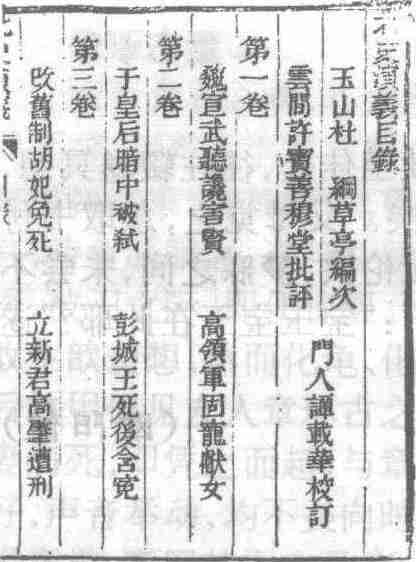 北史演義目錄
玉山杜 綱草亭編次
雲間許寶善穆堂批評
門人譚載華校訂
第一卷
魏宣武聽讒害賢 高領軍固寵獻女
第二卷
于皇后暗中被弑 彭城王死後含冤
第三卷
改舊制胡妃免死 立新君高肇遭刑